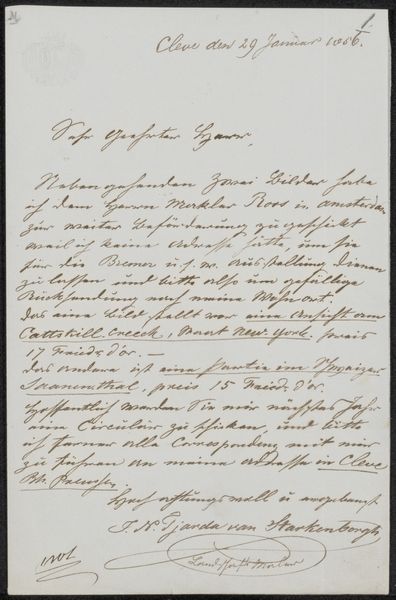 Cleve den 29 Januar 1856.
Sehr Geehrter Herr,
Nebengehenden zwei Bilder habe
ich dem Herrn Makler Roos in Amsterdam
zur weiter beförderung zugeschickt
weil ich keine Adresse hatte, um sie
für die Bremer u.s.w. Ausstellung dienen
zu lassen und bitte also um gefällige
Rücksendung nach meine Wohn ort.
Das eine bild stelt vor eine Ansicht am
Cattskill creeck, Staat New York. preis
17 Friedr d'or. —
das andere ist eine Partie im Schweizer
Saanenthal, preis 15 Friedr d'or.
Hoffentlich werden Sie mir nächstes Jahr
eine Circulair zu schicken, und bitte
ich ferner alle Correspondenz mit mir
zu führen an meine Adresse in Cleve
Rh. Preussen.
Hochachtungsvoll u ergebenst
T. N. Tjarda van Starkenborgh
Landschafts Maler